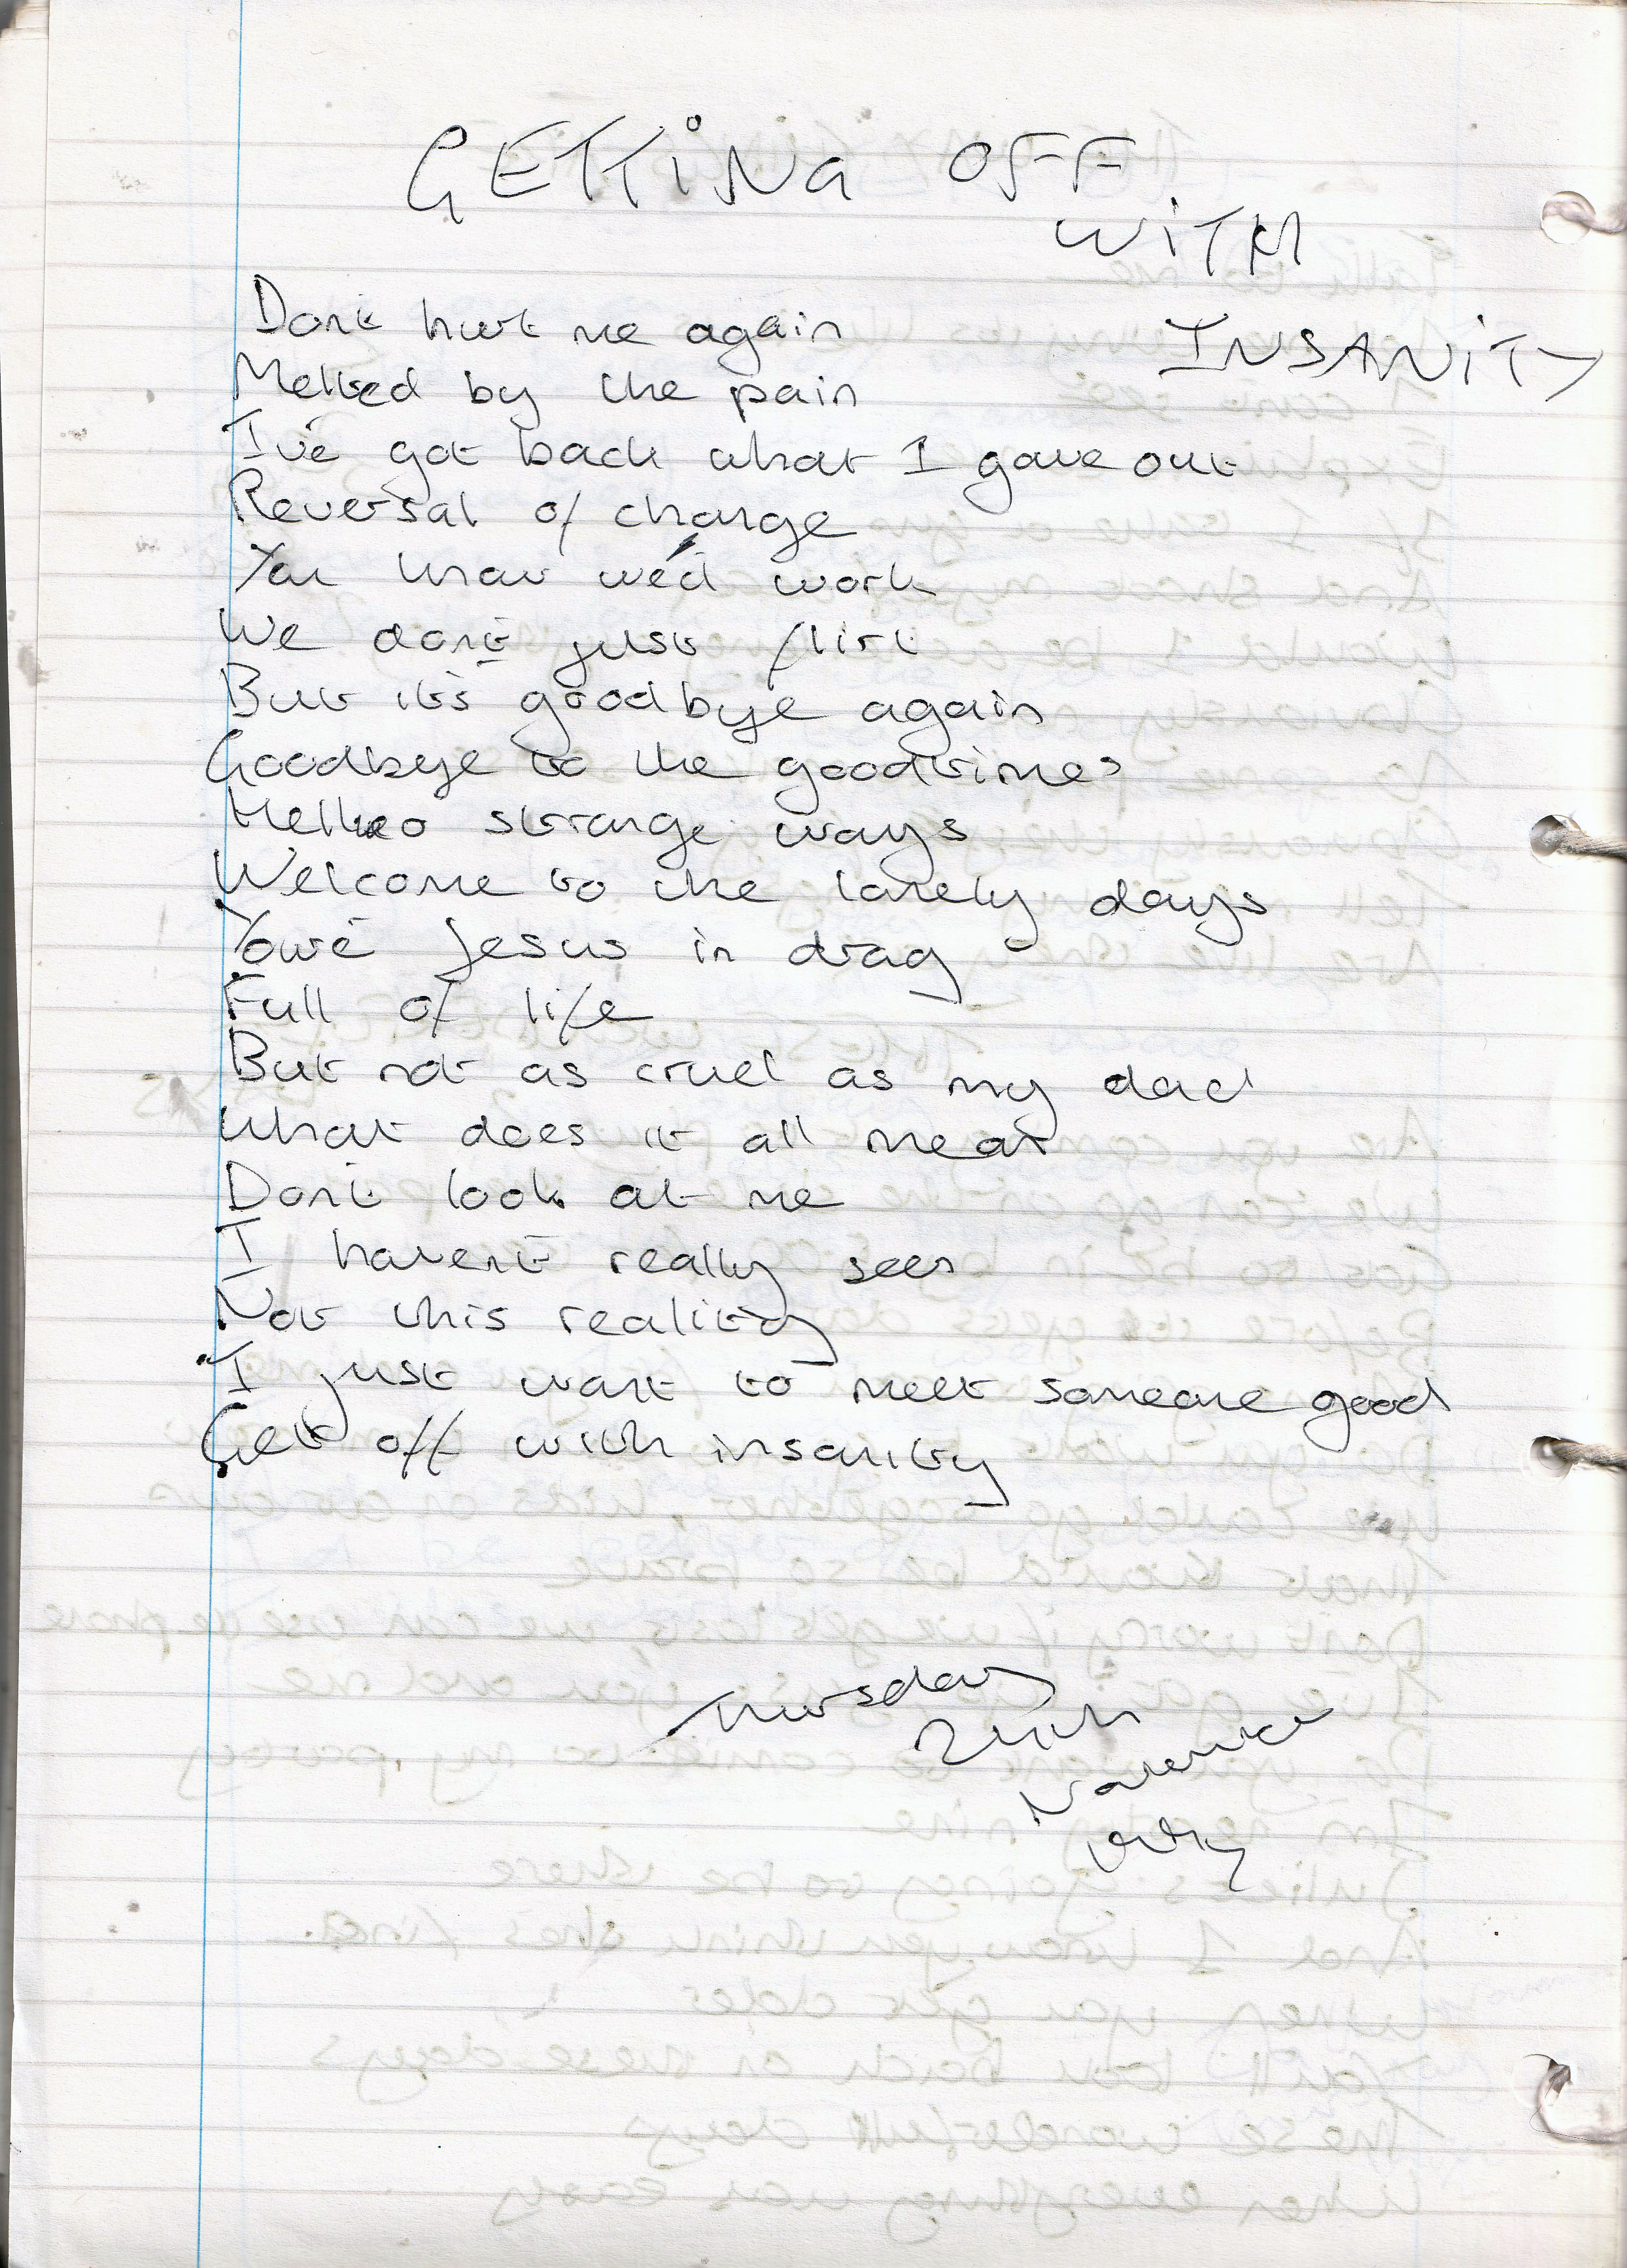 GETTING OFF
WITH
INSANITY
Don't hurt me again
Melted by the pain
I've got back what I gave out
Reversal of charge
You know we'd work
We don't just flirt
But it's goodbye again
Goodbye to the goodtimes
Hello strange ways
Welcome to the lonely days
You're Jesus in drag
Full of life
But not as cruel as my dad
What does it all mean
Don't look at me
I haven't really seen
Not this reality
I just want to meet someone good
Get off with insanity
Thursday
24th
November